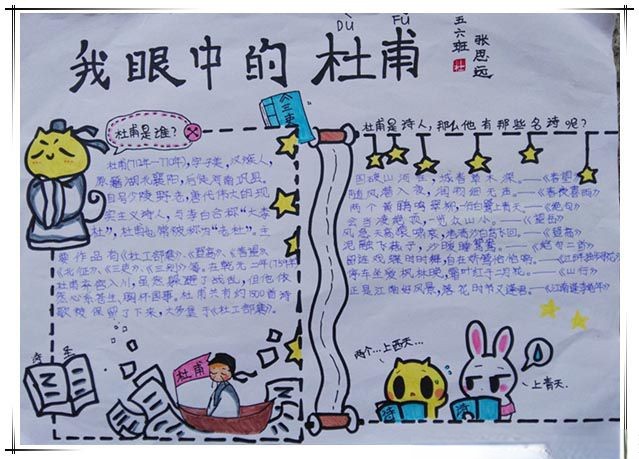 Dù Fǔ
我眼中的杜甫
五六班
张思远
杜
三吏
杜甫是谁?
杜甫(712年—770年),字子美,汉族人,
原籍湖北襄阳,后徙河南巩县.
自号少陵野老,唐代伟大的现
实主义诗人,与李白合称“大李
杜”,杜甫也常被称为“老杜”。主
要作品有《杜工部集》、《登高》、《春望》
《北征》、《三吏》、《三别》等。在乾元二年(759)年
杜甫弃官入川,虽然躲避了战乱,但他依
然心系苍生,胸怀国事。杜甫共有约1500首诗
歌被保留了下来,大多集于《杜工部集》.
杜甫
杜甫是诗人,那么他有那些名诗呢?
国破山河在,城春草木深。——《春望》
随风潜入夜,润物细无声。——《春夜喜雨》
两个黄鹂鸣翠柳,一行白鹭上青天——《绝句》
会当凌绝顶,一览众山小。——《望岳》
风急天高猿啸哀,渚清沙白鸟飞回。——《登高》
泥融飞燕子,沙暖睡鸳鸯。——《绝句二首》
留连戏蝶时时舞,自在娇莺恰恰啼。——
停车坐爱枫林晚,霜叶红于二月花。——《山行》
正是江南好风景,落花时节又逢君。——《江南逢李龟年》
两个...上西天...
...上青天.
诗
诗